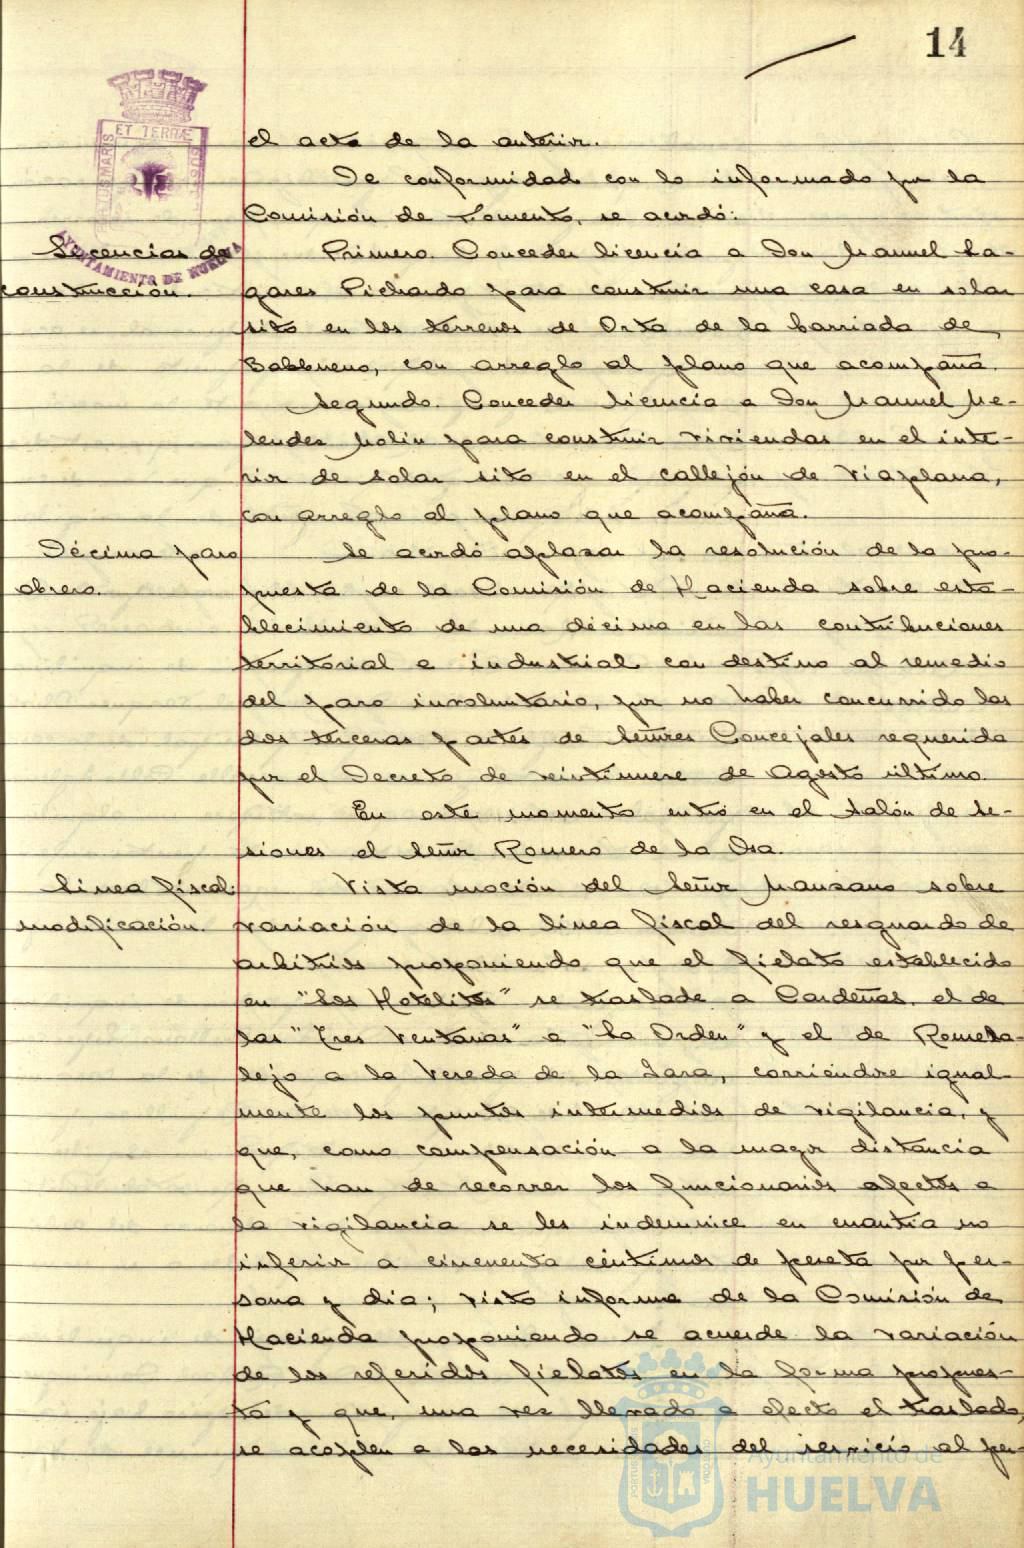 14
ET TERRÆ
PORTUS MARIS
CUSTO
AYUNTAMIENTO DE HUELVA
el acta de la anterior.
De conformidad con lo informado por la
Comisión de Fomento, se acordó:
Licencias de
construcción.
Primero. Conceder licencia a Don Manuel La-
gares Pichardo para construir una casa en solar
sito en los terrenos de Orta de la barriada de
Balbueno, con arreglo al plano que acompaña.
Segundo. Conceder licencia a Don Manuel Me-
lendez Molin para construir viviendas en el inte-
rior de solar sito en el callejón de Viaplana,
con arreglo al plano que acompaña.
Décima paro
obrero.
Se acordó aplazar la resolución de la pro-
puesta de la Comisión de Hacienda sobre esta-
blecimiento de una décima en las contribuciones
territorial e industrial con destino al remedio
del paro involuntario, por no haber concurrido las
dos terceras partes de Señores Concejales requerida
por el Decreto de veintinueve de Agosto último.
En este momento entró en el Salón de Se-
siones el Señor Romero de la Osa.
Linea fiscal:
modificación.
Vista moción del Señor Manzano sobre
variación de la linea fiscal del resguardo de
arbitrios proponiendo que el fielato establecido
en "Los Hotelitos" se traslade a Cardeñas, el de
las "Tres Ventanas" a "La Orden" y el de Remela-
dejo a la Vereda de la Zara, corriéndose igual-
mente los puntos intermedios de vigilancia, y
que, como compensación a la mayor distancia
que han de recorrer los funcionarios afectos a
la vigilancia se les indemnice en cuantía no
inferior a cincuenta céntimos de peseta por per-
sona y dia; visto informe de la Comisión de
Hacienda proponiendo se acuerde la variación
de los referidos fielatos en la forma propues-
ta y que, una vez llevado a efecto el traslado,
se acoplen a las necesidades del servicio al per-
Ayuntamiento de
HUELVA